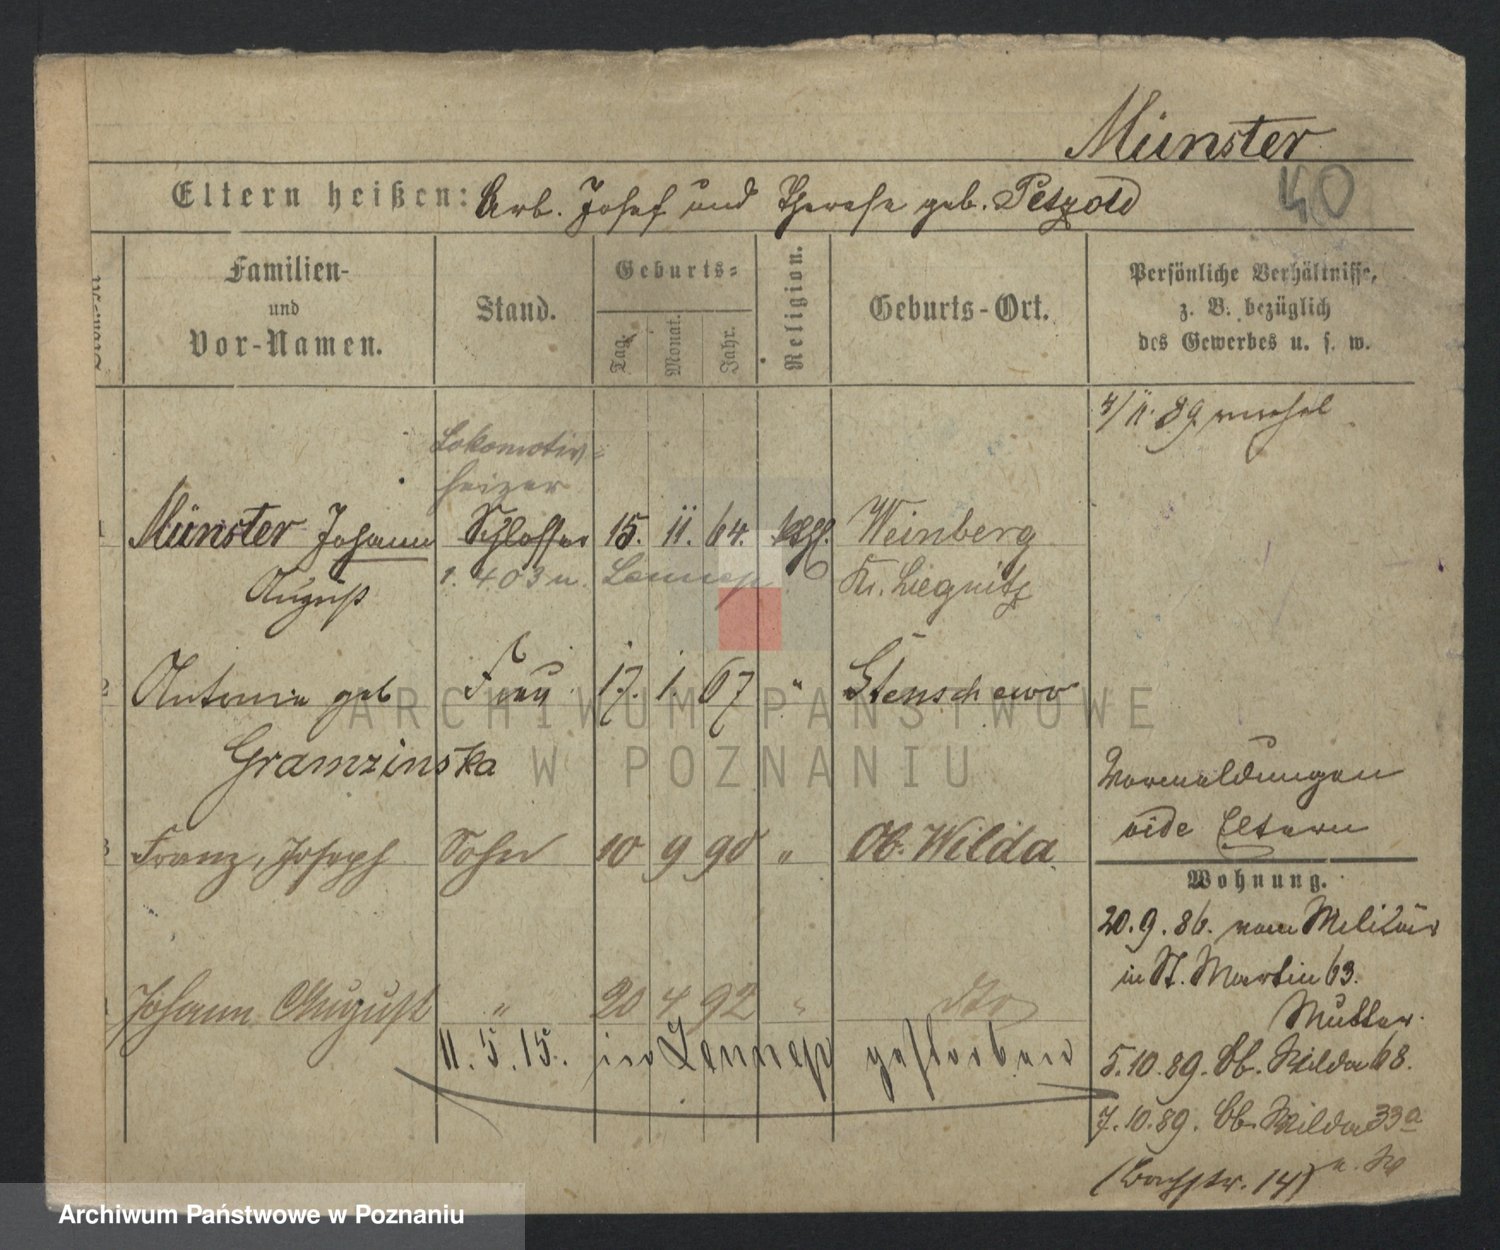 Münster
Eltern heißen: Arb. Josef und Therese geb. Petzold
40
Nummer.
Familien- und Vor-Namen.
Stand.
Geburts-
Tag. Monat. Jahr.
Religion.
Geburts-Ort.
Persönliche Verhältnisse,
z. B. bezüglich
des Gewerbes u. s. w.
4/11. 89
Lokomotiv-
heizer
1 Münster Johann Schlosser 15. 11. 64. kath. Weinberg
August Lennep Kr. Liegnitz
2 Antonie geb Frau 17. 1. 67 " Stenschewo
Gramzinska
3 Franz, Joseph Sohn 10 9 90 " Ob. Wilda
Johann August " 20 4 92 " dto
11. 5. 15. in Lennep gestorben
Vormeldungen
vide Eltern
Wohnung.
20. 9. 86. vom Militär
in St. Martin 63.
Mutter.
5. 10. 89. Ob. Wilda 68.
7. 10. 89. Ob. Wilda 33a
(Bachstr. 14)
ARCHIWUM PAŃSTWOWE
W POZNANIU
Archiwum Państwowe w Poznaniu